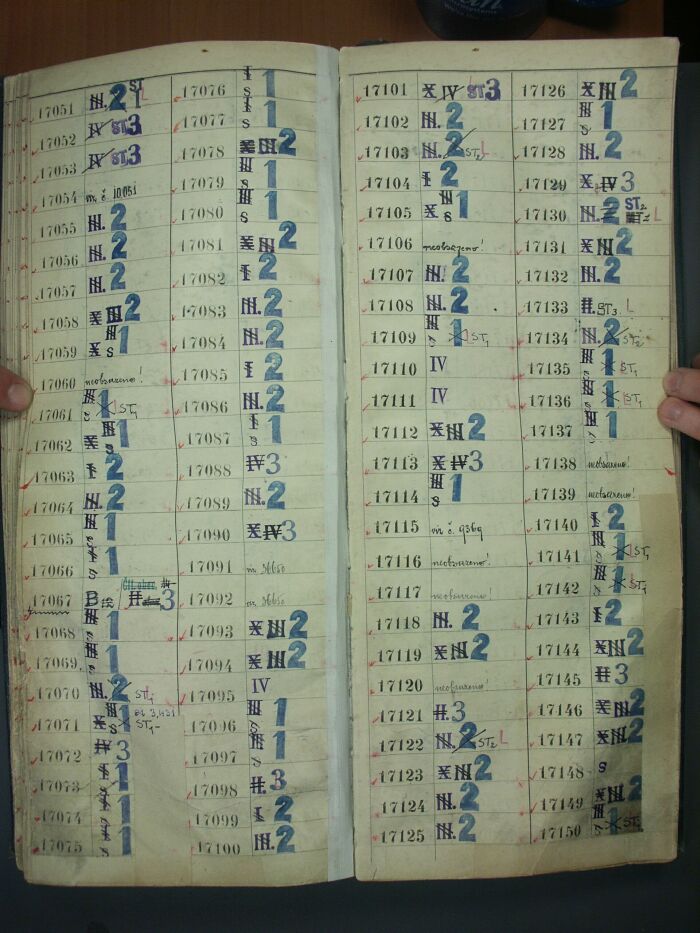 17051 III. 2 ST I L
17052 IV ST. 3
17053 IV ST. 3
17054 m. č. 10051
17055 III. 2
17056 III. 2
17057 III. 2
17058 X III 2
17059 III X s 1
17060 neobsazeno!
17061 III s 1 ST1
17062 X III s 1
17063 I 2
17064 III. 2
17065 III s 1
17066 I s 1
17067 B 3
17068 III s 1
17069 III s 1
17070 III. 2 ST1
17071 X III 1 ST1-
17072 IV 3
17073 I s 1
17074 I s 1
17075 s 1
17076 I s 1
17077 I s 1
17078 X III 2
17079 III s 1
17080 III s 1
17081 X III 2
17082 I 2
17083 III. 2
17084 III. 2
17085 I 2
17086 III. 2
17087 I s 1
17088 IV 3
17089 III. 2
17090 X IV 3
17091
17092
17093 X III 2
17094 X III 2
17095 IV
17096 III s 1
17097 III s 1
17098 II. 3
17099 I 2
17100 III. 2
17101 X IV ST 3
17102 III. 2
17103 III. 2 ST2 L
17104 I 2
17105 X III s 1
17106 neobsazeno!
17107 III. 2
17108 III. 2
17109 III s 1 ST1
17110 IV
17111 IV
17112 X III 2
17113 X IV 3
17114 III s 1
17115 m. č. 9369
17116 neobsazeno!
17117 neobsazeno!
17118 III. 2
17119 X III 2
17120 neobsazeno!
17121 II. 3
17122 III. 2 ST2 L
17123 X III 2
17124 III. 2
17125 III. 2
17126 X III 2
17127 III s 1
17128 III. 2
17129 X IV 3
17130 III. 2 ST2 L
17131 X III 2
17132 III. 2
17133 II. ST3. L
17134 III. 2 ST2
17135 III s 1 ST1
17136 III s 1 ST1
17137 III s 1
17138 neobsazeno!
17139 neobsazeno!
17140 I 2
17141 III s 1 ST1
17142 III s 1 ST1
17143 I 2
17144 X III 2
17145 II 3
17146 X III 2
17147 X III 2
17148 s
17149 X III 2
17150 s 1 ST1